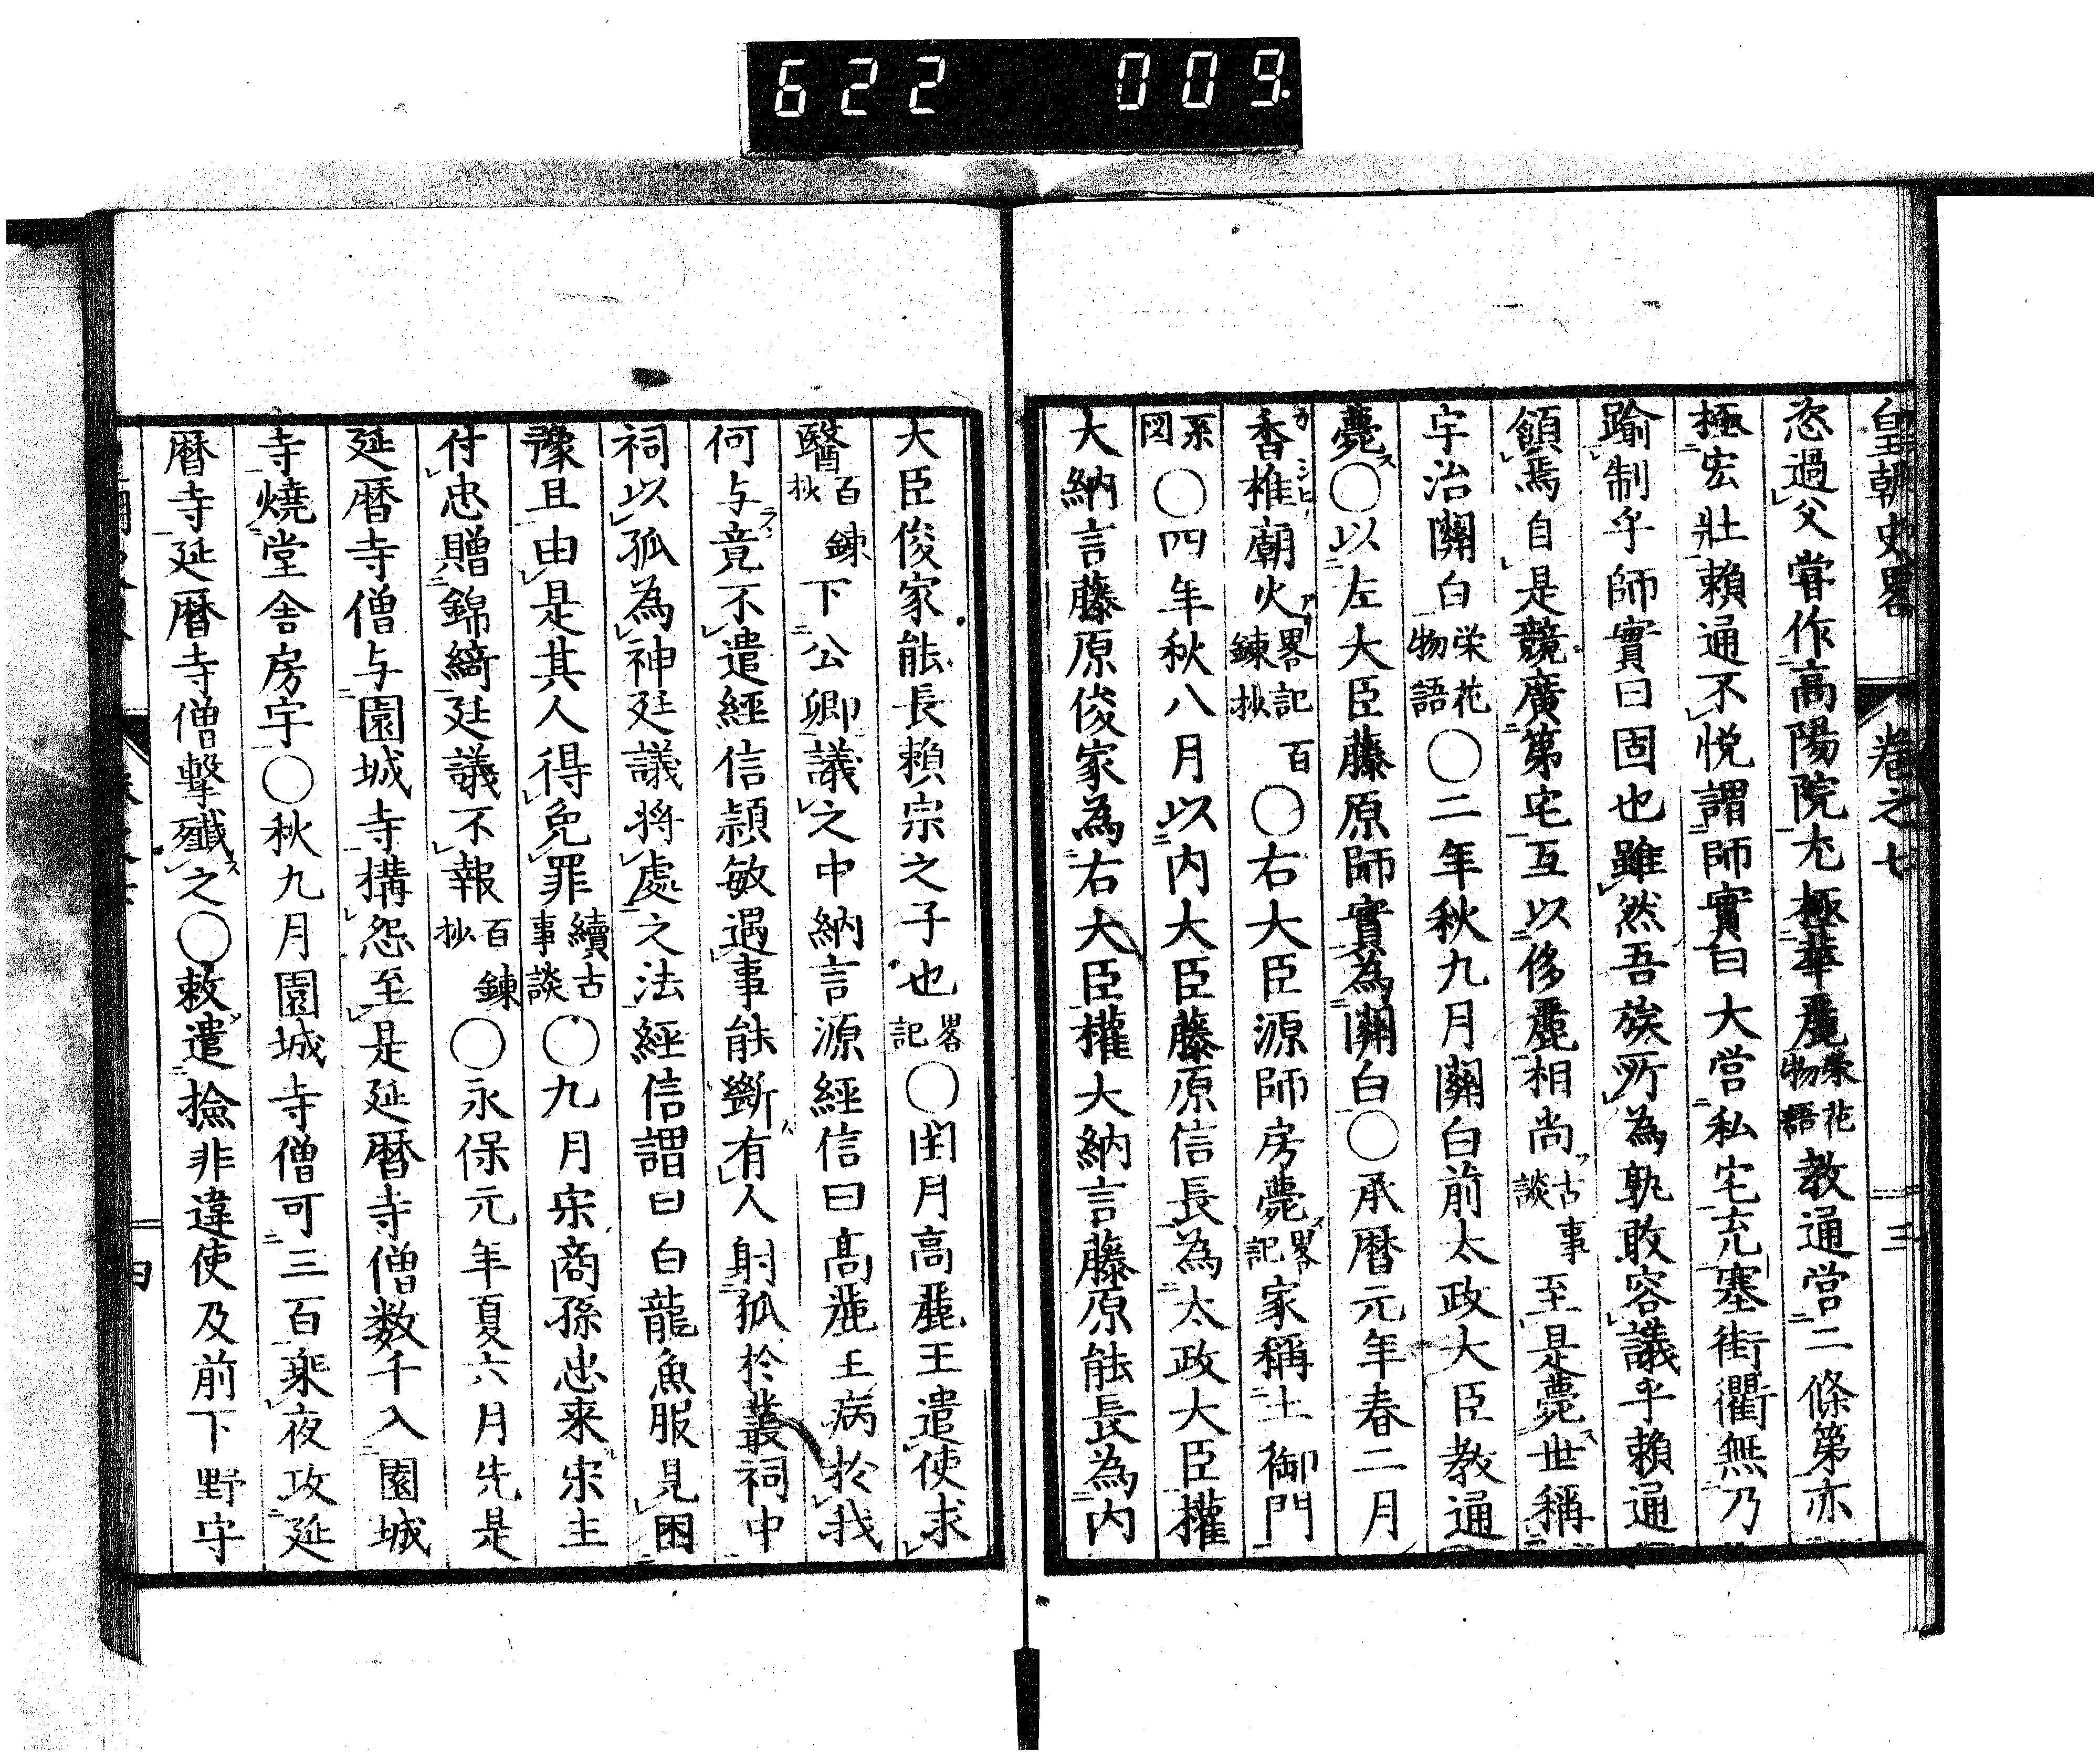 622 009.
皇朝史畧 卷之七 三
恣過父甞作高陽院尢極華麗榮花物語教通営二條第亦
極宏壯頼通不悦謂師實曰大営私宅充塞街衢無乃
踰制乎師實曰固也雖然吾族所為孰敢容議乎頼通
頷焉自是競廣第宅互以侈麗相尚古事談至是薨世稱
宇治關白栄花物語〇二年秋九月關白前太政大臣教通
薨〇以左大臣藤原師實為關白〇承暦元年春二月
香椎廟火畧記百錬抄〇右大臣源師房薨畧記家稱土御門
系図〇四年秋八月以内大臣藤原信長為太政大臣權
大納言藤原俊家為右大臣權大納言藤原能長為内
大臣俊家能長頼宗之子也畧記〇閏月高麗王遣使求
醫百錬抄下公卿議之中納言源經信曰高麗王病於我
何与竟不遣經信頴敏遇事能斷有人射狐於叢祠中
祠以狐為神廷議將處之法經信謂曰白龍魚服見困
豫且由是其人得免罪續古事談〇九月宋商孫忠来宋主
付忠贈錦綺廷議不報百錬抄〇永保元年夏六月先是
延暦寺僧与園城寺搆怨至是延暦寺僧数千入園城
寺燒堂舎房宇〇秋九月園城寺僧可三百乗夜攻延
暦寺延暦寺僧撃殲之〇敕遣撿非違使及前下野守